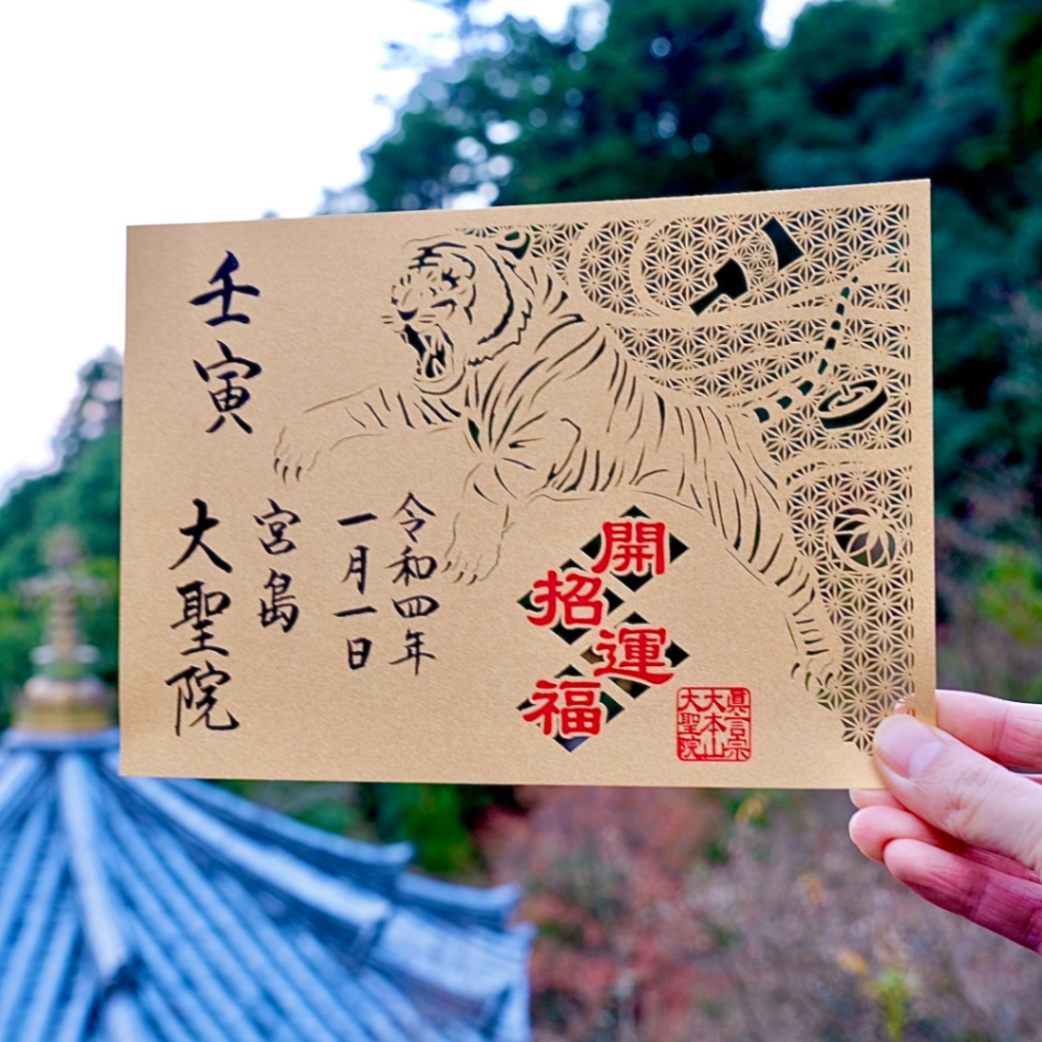 開運
招福
眞言宗
大本山
大聖院
令和四年
一月一日
宮島
大聖院
壬寅